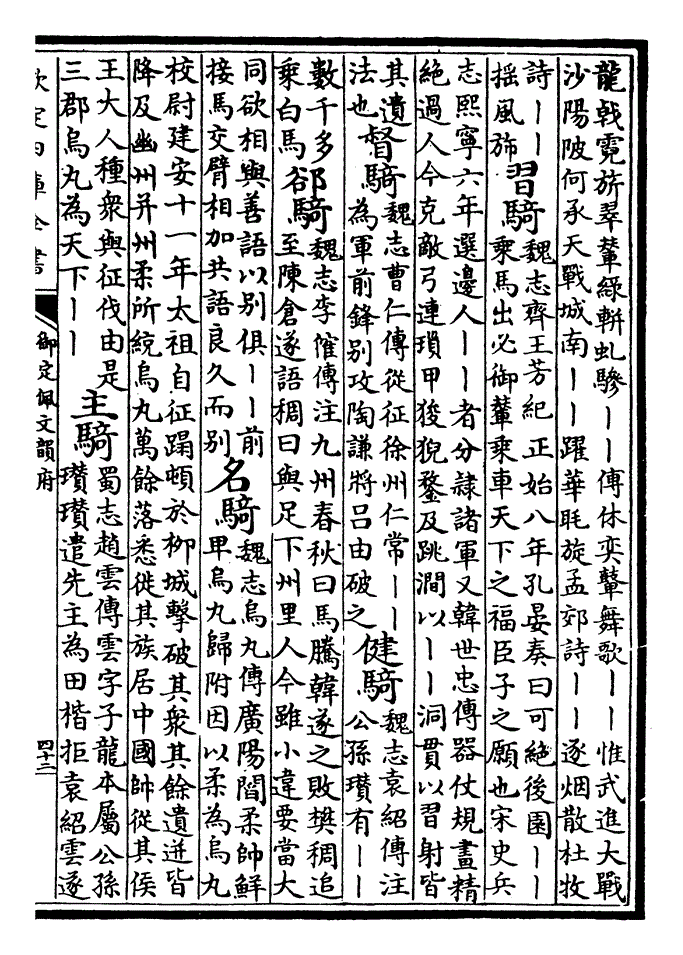 龍㦸霓旂翠輦綠輧虬驂丨丨傅休奕鼙舞歌丨丨惟武進大戰
沙陽陂何承天戰城南丨丨躍華眊旋孟郊詩丨丨逐烟散杜牧
詩丨丨
摇風斾
習騎
魏志齊王芳紀正始八年孔晏奏曰可絶後園丨丨
乘馬出必御輦乘車天下之福臣子之願也宋史兵
志熙寧六年選邊人丨丨者分隷諸軍又韓世忠傳器仗規畫精
絶過人今克敵弓連瑣甲狻猊鍪及跳澗以丨丨洞貫以習射皆
其遺
法也
督騎
魏志曹仁傳從征徐州仁常丨丨
為軍前鋒别攻陶謙將吕由破之
健騎
魏志袁紹傳注
公孫瓚有丨丨
數千多
乘白馬
郤騎
魏志李傕傳注九州春秋曰馬騰韓遂之敗樊稠追
至陳倉遂語稠曰與足下州里人今雖小違要當大
同欲相與善語以别俱丨丨前
接馬交臂相加共語良久而别
名騎
魏志烏丸傳廣陽閻柔帥鮮
卑烏丸歸附因以柔為烏丸
校尉建安十一年太祖自征蹋頓於柳城擊破其衆其餘遺迸皆
降及幽州并州柔所統烏丸萬餘落悉徙其族居中國帥從其侯
王大人種衆與征伐由是
三郡烏丸為天下丨丨
主騎
蜀志趙雲傳雲字子龍本屬公孫
瓚瓚遣先主為田楷拒袁紹雲遂
欽定四庫全書
御定佩文韻府
四十三